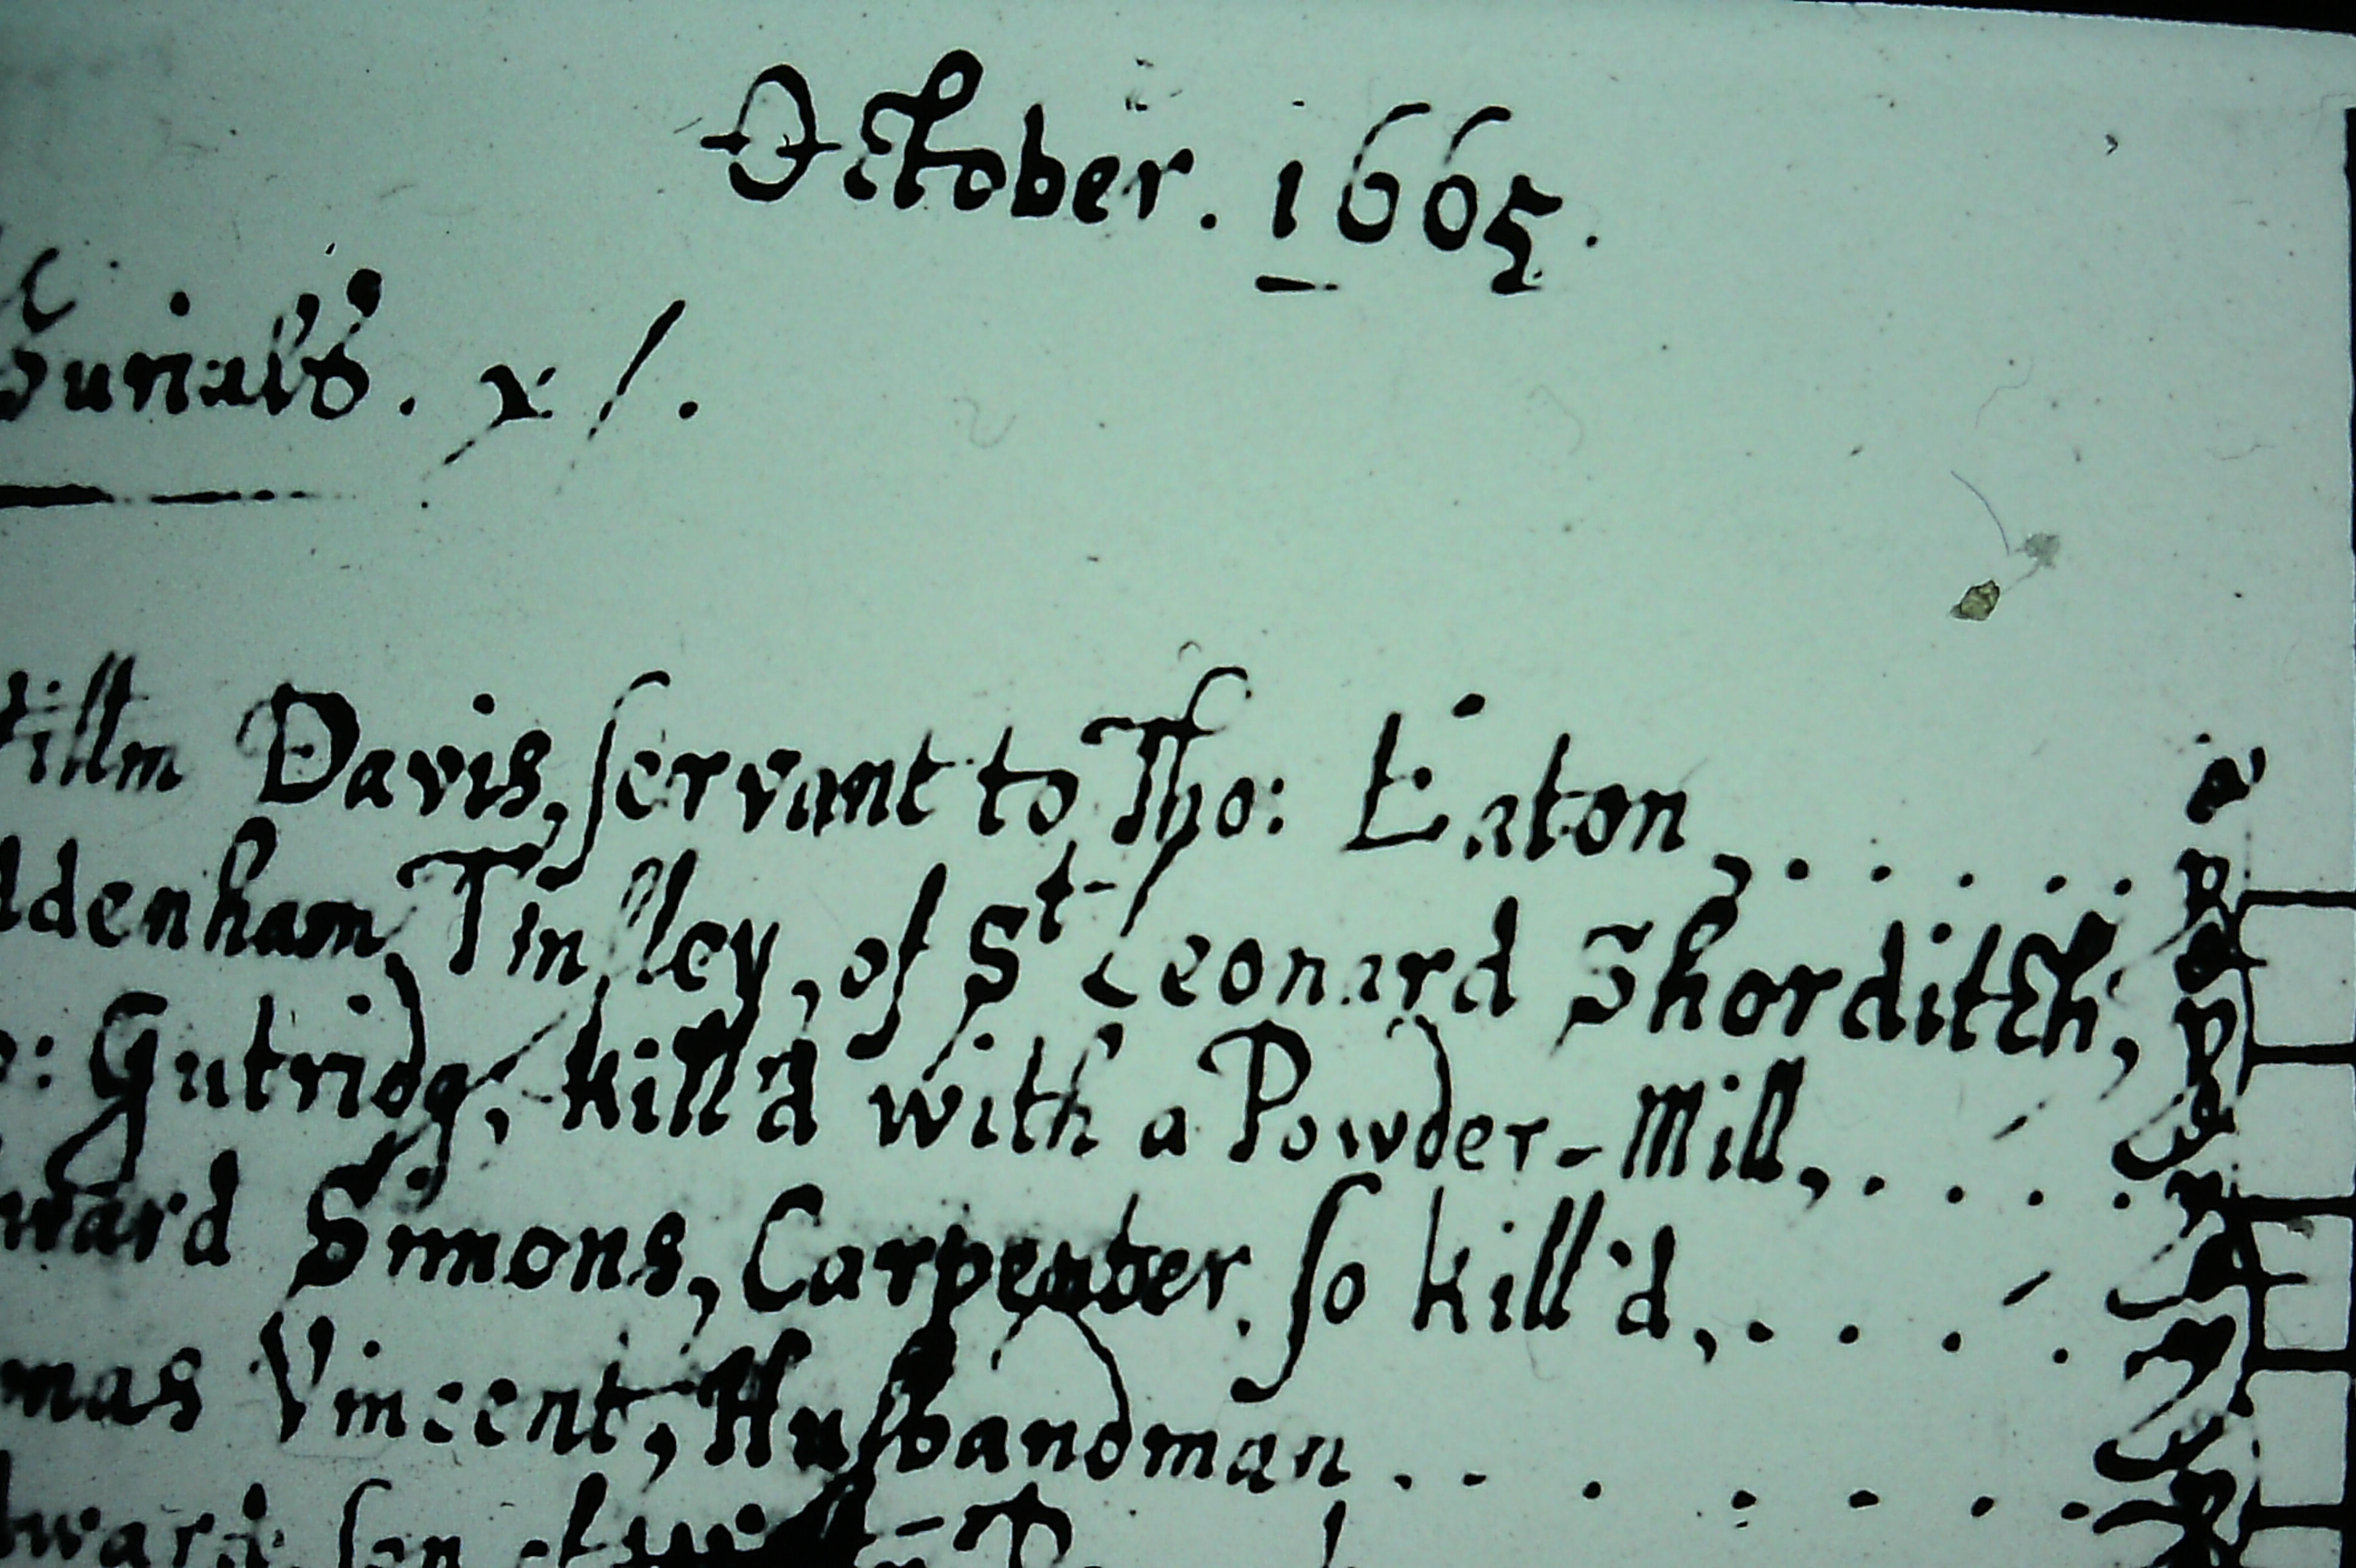 October. 1665.
Burialls.
Willm Davis, servant to Tho: Eaton
ddenham Tinsley, of St Leonard Shorditch,
o: Gutridg, kill'd with a Powder-Mill,
ward Simons, Carpenter, so kill'd,
mas Vincent, Husbandman
dward son of